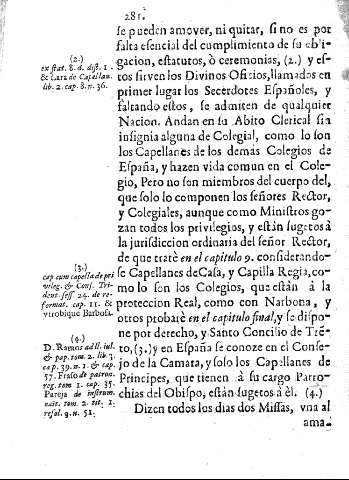 281.
se pueden amover, ni quitar, si no es por
falta esencial del cumplimiento de su obli-
gacion, estatutos, ò ceremonias, (2.) y es-
tos sirven los Divinos Oficios, llamados en
primer lugar los Secerdotes Españoles, y
faltando estos, se admiten de qualquier
Nacion. Andan en su Abito Clerical sin
insignia alguna de Colegial, como lo son
los Capellanes de los demás Colegios de
España, y hazen vida comun en el Cole-
gio, Pero no son miembros del cuerpo del,
que solo lo componen los señores Rector,
y Colegiales, aunque como Ministros go-
zan todos los privilegios, y están sugetos à
la jurisdiccion ordinaria del señor Rector,
de que tratè en el capitulo 9. considerando-
se Capellanes de Casa, y Capilla Regia, co-
mo lo son los Colegios, que están à la
proteccion Real, como con Narbona, y
otros probarè en el capitulo final, y se dispo-
ne por derecho, y Santo Concilio de Tré-
to, (3.) y en España se conoze en el Conse-
jo de la Camara, y solo los Capellanes de
Principes, que tienen à su cargo Parro-
chias del Obispo, están sugetos à èl. (4.)
Dizen todos los dias dos Missas, vna al
ama-
(2.)
ex stat. 8. d. dist. 1.
& Lara de Capellan.
lib. 2. cap. 8. n. 36.
(3.)
cap cum capella de pri
vileg. & Conc. Tri-
dent. sess 24. de re-
format. cap. 11. &
vtrobique Barbosa.
(4.)
D. Ramos ad ll. iul.
& pap. tom. 2. lib. 3.
cap. 39. n. 1. & cap.
57. Fraso de patron.
reg. tom 1. cap. 35.
Pareja de instrum.
edit. tom. 2. tit. 1.
resol. 9. n. 51.